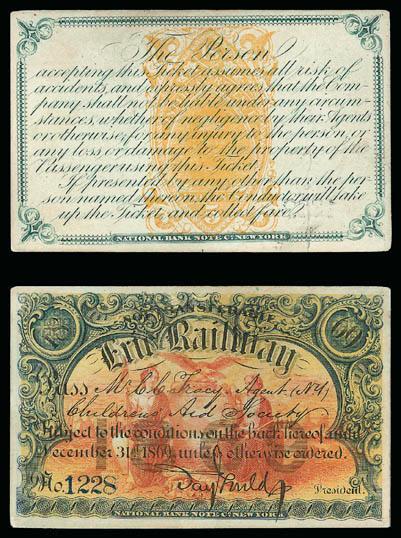 The Person
accepting this Ticket assumes all risk of
accidents, and expressly agrees that the Com-
pany shall not be liable under any circum-
stances, whether of negligence by their Agents
or otherwise, for any injury to the person, or
any loss or damage to the property of the
Passenger using this Ticket.
If presented by any other than the per-
son named thereon, the Conductor will take
up the Ticket and collect fare.
NATIONAL BANK NOTE Co. NEW YORK
NOT TRANSFERABLE
Erie Railway
Pass Mr. E. C. Tracy, Agent (N.Y.)
Children's Aid Society
Subject to the conditions on the back hereof, until
December 31st 1869, unless otherwise ordered.
No. 1228
Jay Gould
President.
NATIONAL BANK NOTE Co. NEW YORK